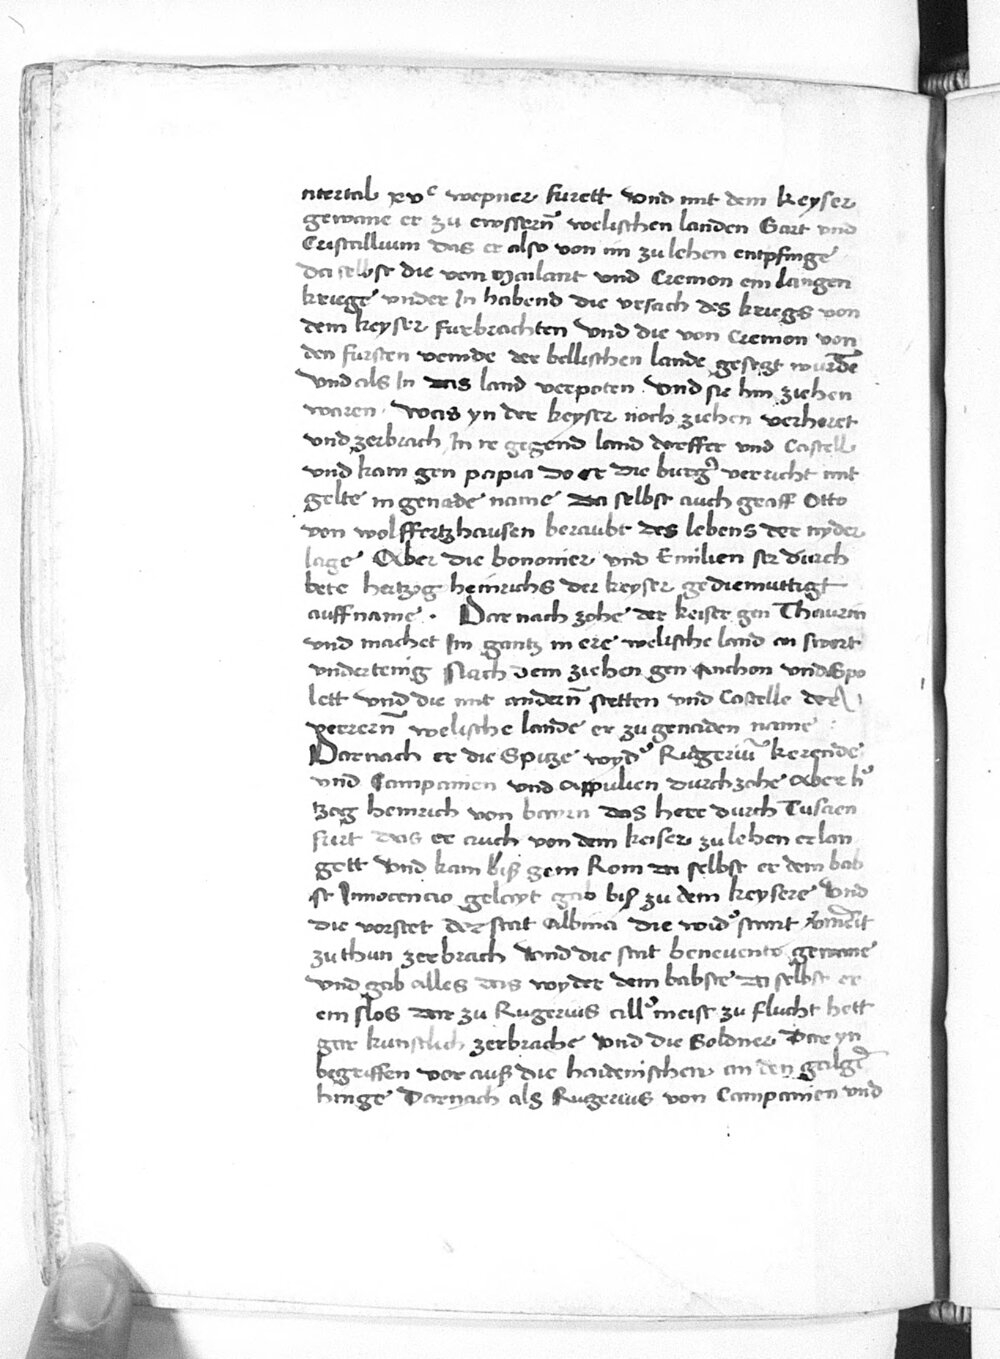 ntertal xvc wepner furett vnd mit dem keyser
gewane er zu ewssernn welischen landen Gart vnd
Cristallium das er also von im zu lehen entpfinge
Da selbst die von Mailant vnd Cremon ein langen
kriege vnder In habend die vrsach des kriegs von
dem keyser furbrachten vnd die von Cremon von
den fursten veinde der bellischen lande gesegt wurde
vnd als In das land verpoten vnd sie hin ziehen
waren. Was yn der keyser noch ziehen verheret
vnd zerbrach In re gegend land dorffer vnd Castell
vnd kam gen papia do er die burger vericht mit
gelte in genade name Da selbst auch graff Otto
von wolffertzhausen beraubt des lebens der nyder
lage Aber die bononier vnd Emilien ser durch
bete hertzog heinrichs der keyser gediemuttigt
auffname. Dar nach zohe der keiser gen Thaurin
vnd machet Im gantz in ere welische land an swert
vndertenig Nach dem ziehen gen Anchon vnd Spo
lett vnd die mit andernn stetten vnd Castelle der
verrernn welische lande er zu genaden name :
Darnach er die Spitze wyder Rugerium kerende
vnd Campanien vnd Appulien durchzohe Aber her
tzog heinrich von bairn das here durch Tuscien
furt das er auch von dem keiser zu lehen erlan
gett vnd kam biß gem Rom da selbst er dem bab
st Innocencio geleyt gab biß zu dem keysere vnd
die vorstet der stat Albina die wider stant
zu thun zerbrach vnd die stat benevento gewane
vnd gab alles das wyder dem babste da selbst er
ein slos dar zu Rugerius aller meist zu flucht hett
gar kunstlich zerbrache vnd die Soldner Dar yn
begriffen vor auß die haidenischen an den galgen
hinge Darnach als Rugerius von Campanien vnd